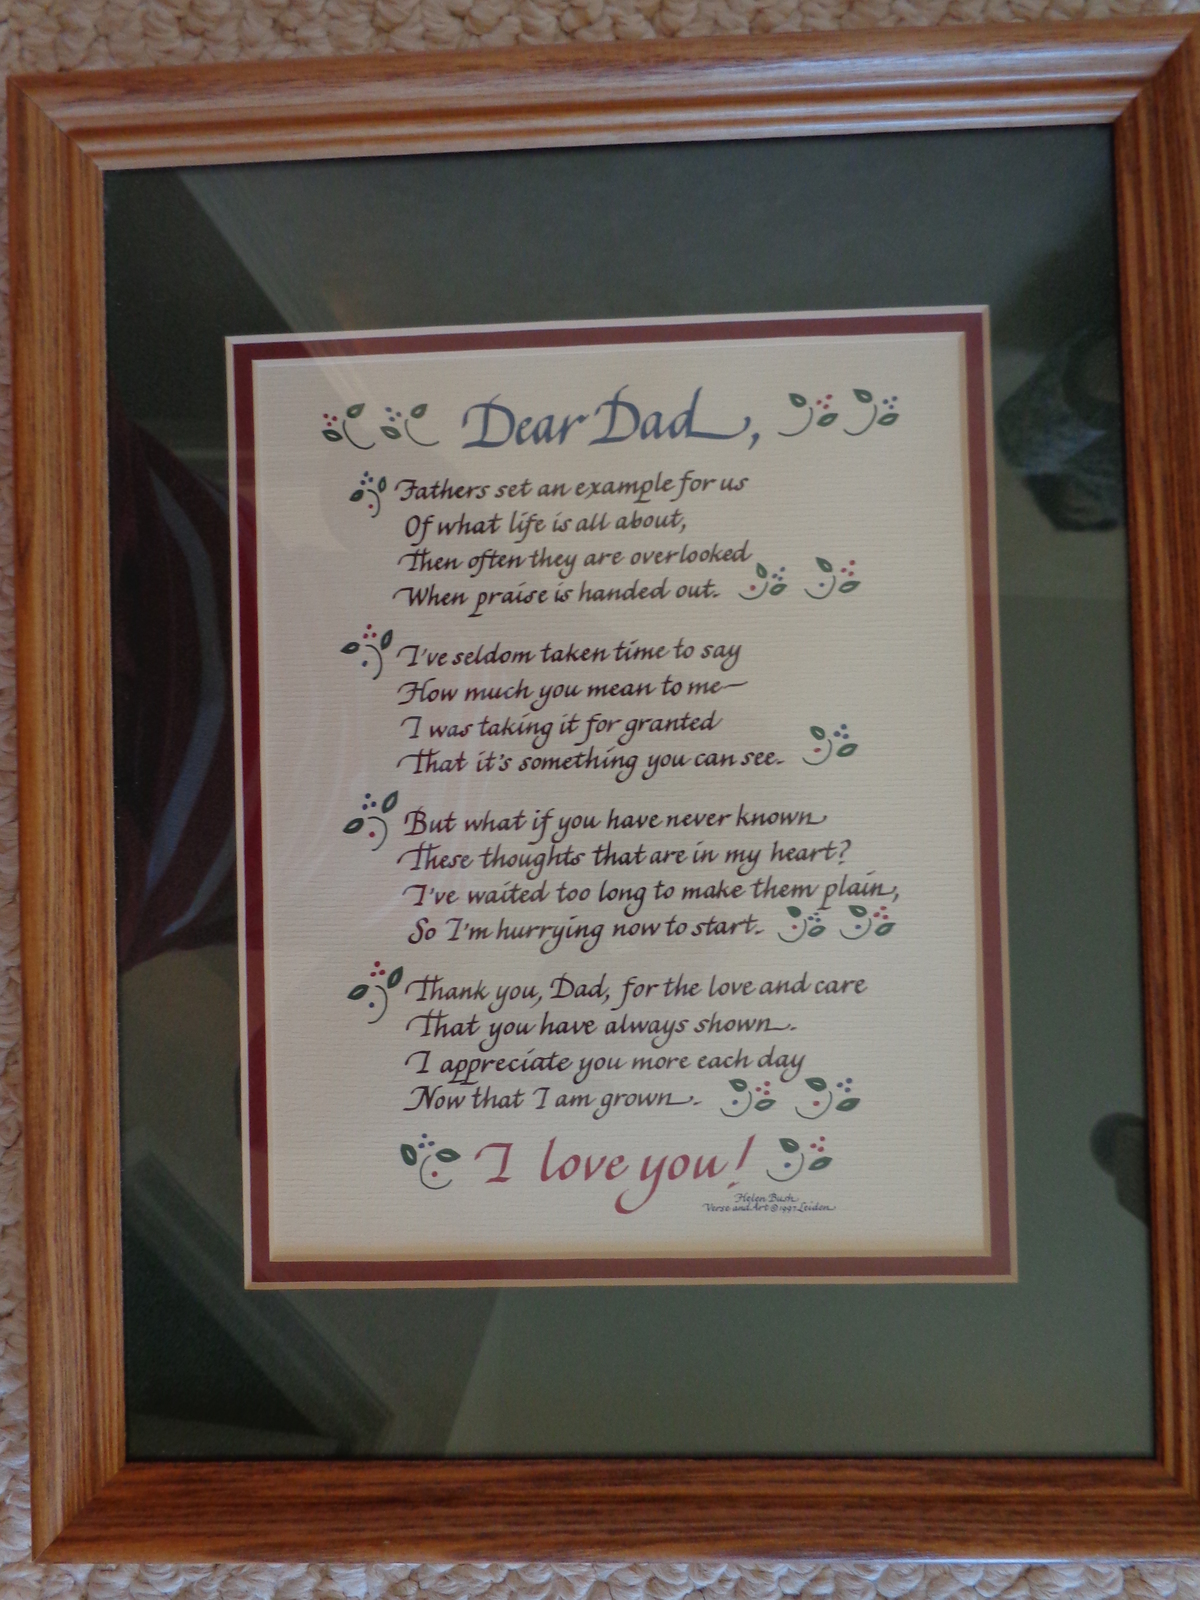 Dear Dad,
Fathers set an example for us
Of what life is all about,
Then often they are overlooked
When praise is handed out.
I've seldom taken time to say
How much you mean to me—
I was taking it for granted
That it's something you can see.
But what if you have never known
These thoughts that are in my heart?
I've waited too long to make them plain,
So I'm hurrying now to start.
Thank you, Dad, for the love and care
That you have always shown.
I appreciate you more each day
Now that I am grown.
I love you!
Helen Bush
Verse and Art © 1997 Leiden